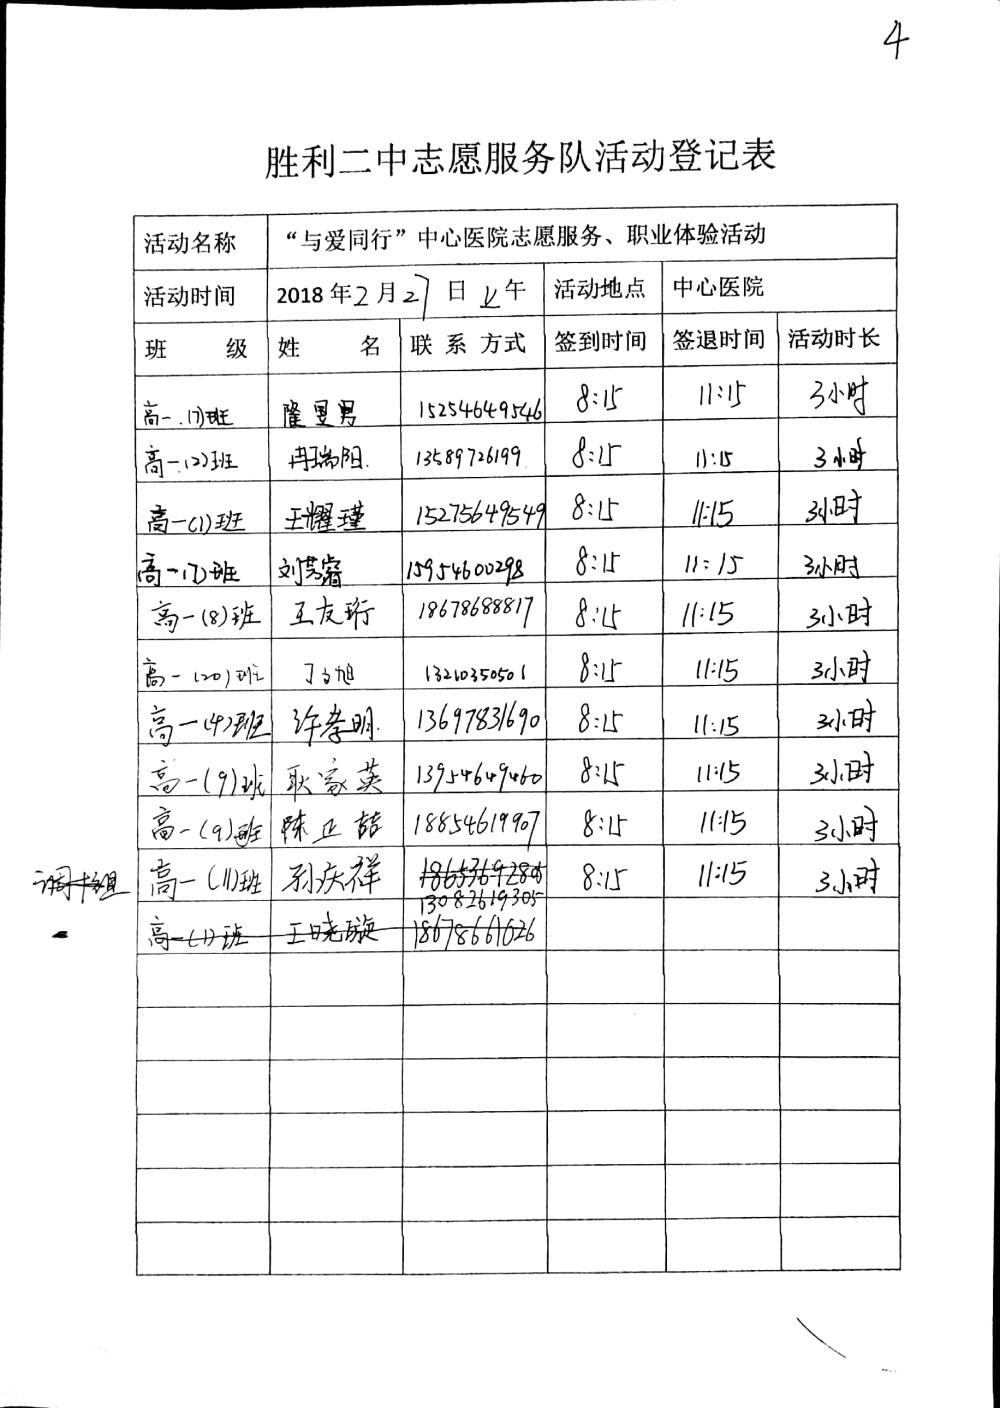 4
胜利二中志愿服务队活动登记表
活动名称 “与爱同行”中心医院志愿服务、职业体验活动
活动时间 2018年2月27日上午 活动地点 中心医院
班 级 姓 名 联系方式 签到时间 签退时间 活动时长
高一.(7)班 隆昱男 15254649546 8:15 11:15 3小时
高一.(2)班 冉瑞阳. 13589726199 8:15 11:15 3小时
高一(1)班 王耀瑾 15275649549 8:15 11:15 3小时
高一(7)班 刘芸睿 15954600298 8:15 11:15 3小时
高一(8)班 王友珩 18678688817 8:15 11:15 3小时
高一(20)班 丁子旭 13210350501 8:15 11:15 3小时
高一(4)班 许孝明. 13697831690 8:15 11:15 3小时
高一(9)班 耿家英 13954649460 8:15 11:15 3小时
高一(9)班 陈正喆 18854619907 8:15 11:15 3小时
高一(11)班 孙庆祥 18653692805 8:15 11:15 3小时
13082619305
高一(1)班 王晓璇 18678661626